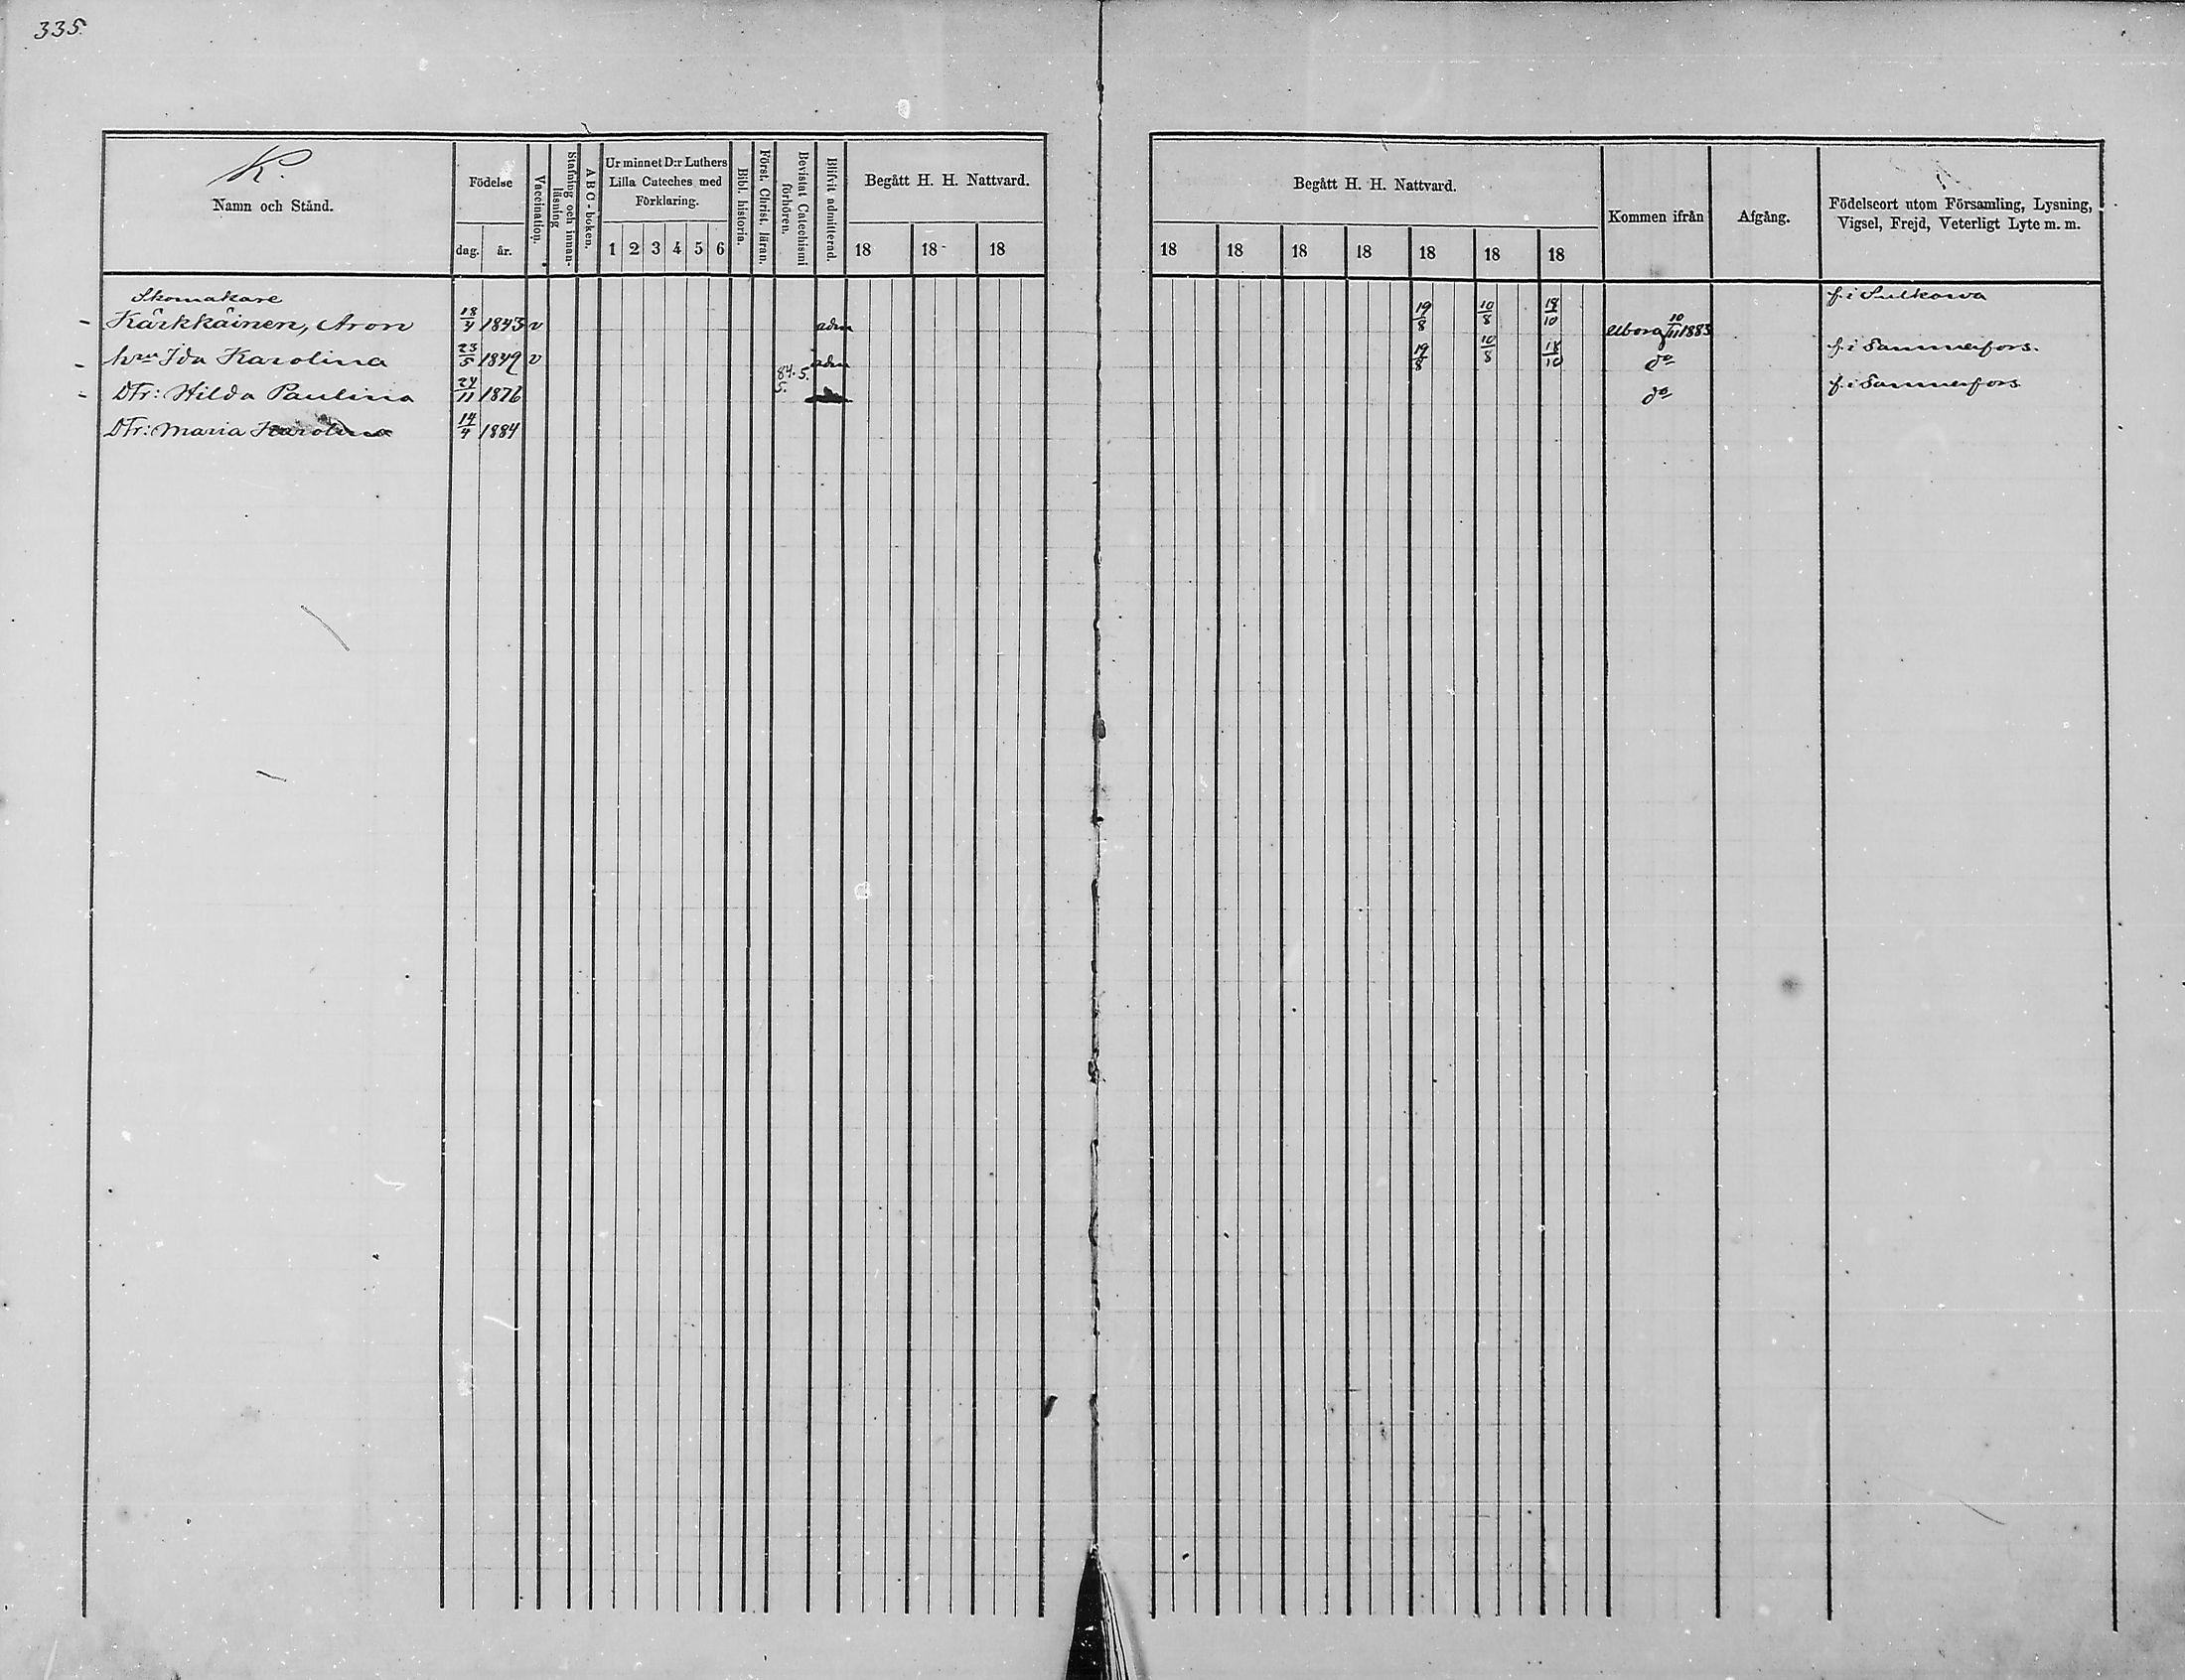 335.
K.
Namn och Stånd.
Födelse
dag. år.
Vaccination.
Stafning och innan-
läsning
A B C - boken.
Ur minnet D:r Luthers
Lilla Cateches med
Förklaring.
1 2 3 4 5 6
Bibl. historia.
Först. Christ. läran.
Bevistat Catechismi
förhören.
Blifvit admitterad.
Begått H. H. Nattvard.
18 18 18
Begått H. H. Nattvard.
18 18 18 18 18 18 18
Kommen ifrån
Afgång.
Födelseort utom Församling, Lysning,
Vigsel, Frejd, Veterligt Lyte m. m.
Skomakare f. i Sulkava
Kärkkäinen, Aron 18/4 1843 v adm 19/8 10/8 18/10 10/11 1883
hru Ida Karolina 23/5 1849 v adm 19/8 10/8 18/10 do f. i Tammerfors.
Dtr: Hilda Paulina 24/11 1876 84. 5. 5. do f. i Tammerfors
Dtr: Maria Karolina 14/4 1884